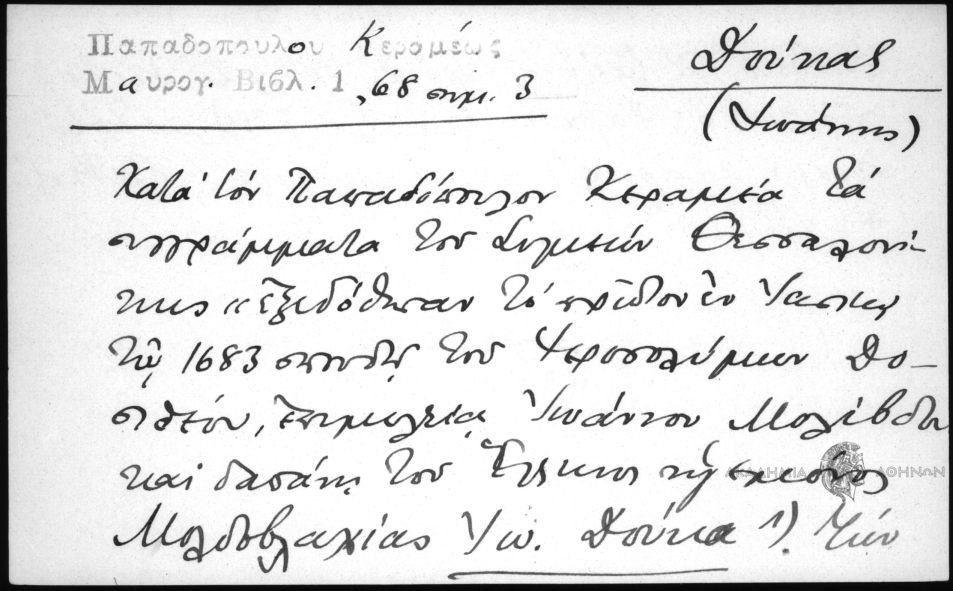 Παπαδοπούλου Κεραμέως
Μαυρογ. Βιβλ. 1, 68 σημ. 3
Δούκας
(Ἰωάννης)
Κατὰ τὸν Παπαδόπουλον Κεραμέα τὰ
συγγράμματα τοῦ Συμεὼν Θεσσαλονί-
κης «ἐξεδόθησαν τὸ πρῶτον ἐν Ἰασίῳ
τῷ 1683 σπουδῇ τοῦ Ἱεροσολύμων Δο-
σιθέου, ἐπιμελείᾳ Ἰωάννου Μολίβδου
καὶ δαπάνῃ τοῦ Ἕλληνος ἡγεμόνος
Μολδοβλαχίας Ἰω. Δούκα»). Τὴν
ΑΚΑΔΗΜΙΑ ΑΘΗΝΩΝ